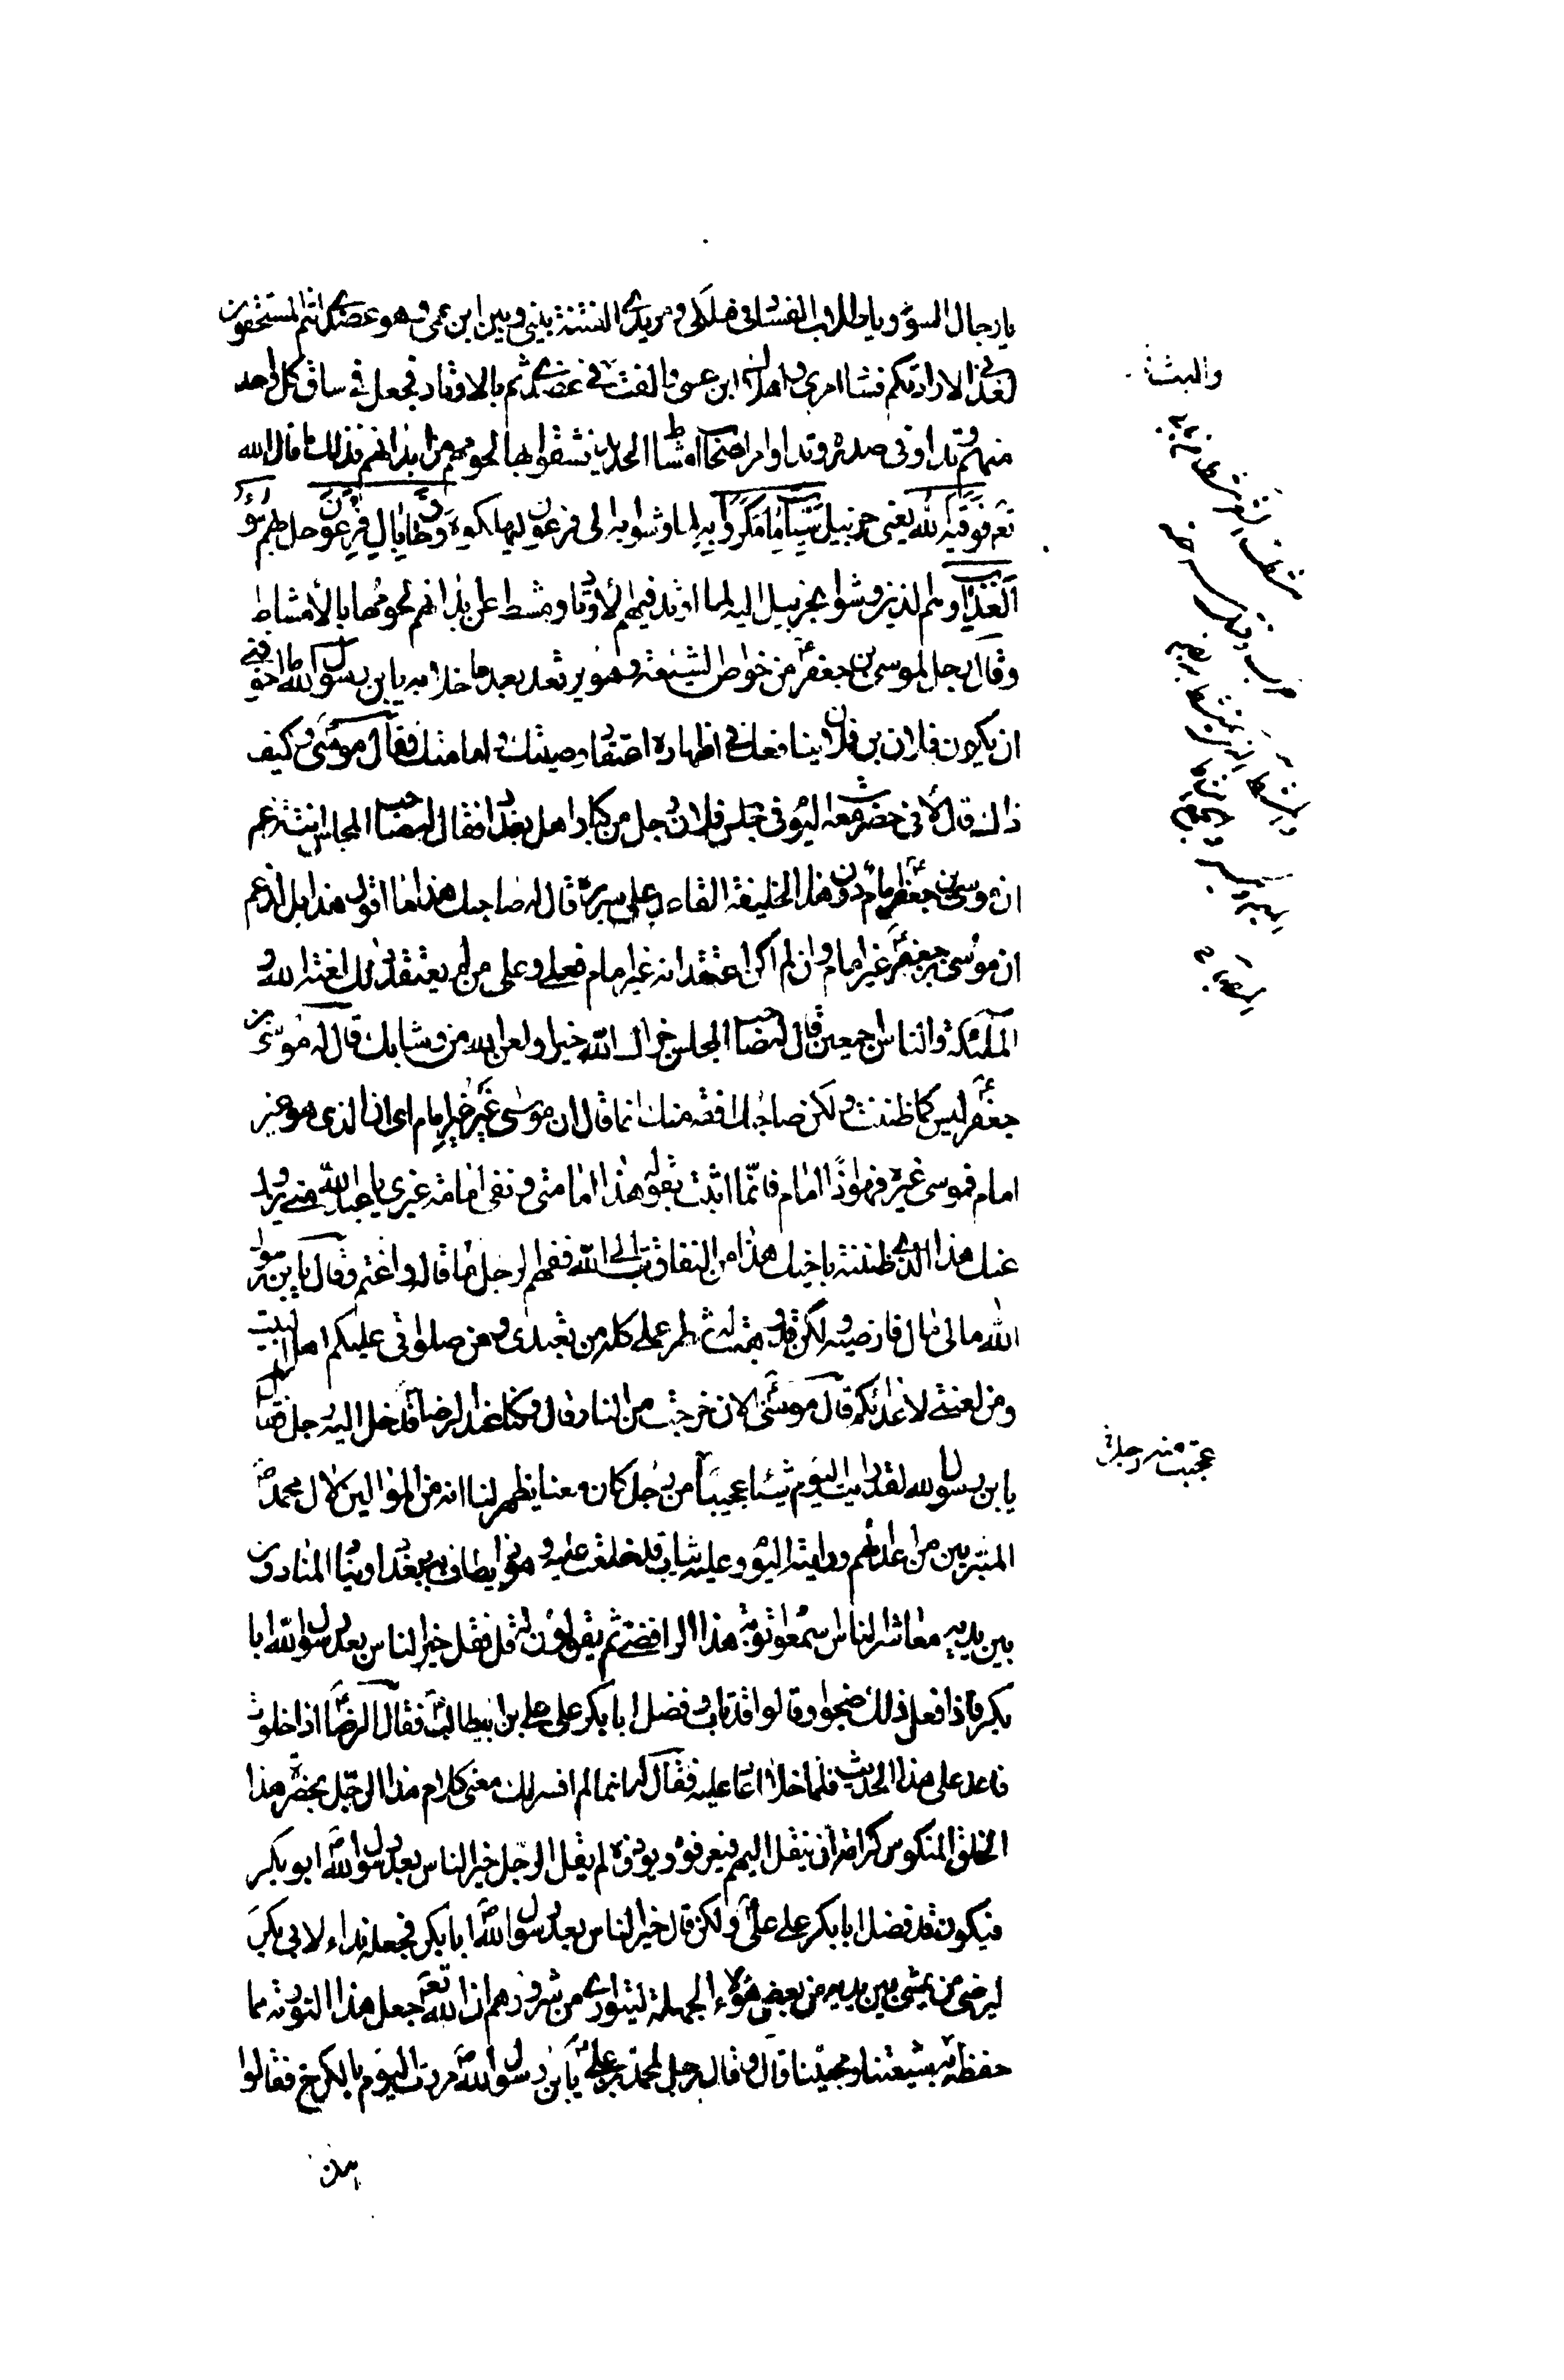 يا رجال السوء ويا طلاب الفساد في ملكي ومريدي الفتنة بيني وبين ابن عمي وهو عضدي انتم المستحقون
لعذابي لارادتكم فساد امري واهلاك ابن عمي والفت في عضدي ثم امر بالاوتاد فجعل في ساق كل واحد
منهم وتدا وفي صدره وتدا وامر اصحاب امشاط الحديد فشقوا بها لحومهم من ابدانهم فذلك ما قال الله
تعم فوقيه الله يعني حزبيل سيئات ما مكروا به لما وشوا به الى فرعون ليهلكوه وحاق بال فرعون حل بهم سوء
العذاب وهم الذين وشوا بحزبيل اليه لما اوتد فيهم الاوتاد ومشط عن ابدانهم لحومها بالامشاط
وقال رجل لموسى بن جعفر ع من خواص الشيعة وهو يرتعد بعد ما خلا به يابن رسول الله ص ما اخوفني
ان يكون فلان بن فلان ينافقك في اظهاره اعتقاد وصيتك وامامتك فقال موسى ع وكيف
ذاك قال لاني حضرت معه اليوم في مجلس فلان رجل من كبار اهل بغداد فقال له صاحب المجلس انت تزعم
ان موسى بن جعفر ع امام دون هذا الخليفة القاعد على سريره قال له صاحبك هذا ما اقول هذا بل ازعم
ان موسى بن جعفر ع غير امام وان لم اكن اعتقد انه غير امام فعلي وعلى من لم يعتقد ذلك لعنة الله و
الملئكة والناس اجمعين قال له صاحب المجلس جزاك الله خيرا ولعن الله من وشا بك قال له موسى بن
جعفر ع ليس كما ظننت ولكن صاحبك افقه منك انما قال ان موسى غير امام اي ان الذي هو غير
امام فموسى غيره فهو اذا امام فانما اثبت بقوله هذا امامتي ونفى امامة غيري يا عبد الله متى يزول
عنك هذا الذي ظننته باخيك هذا من النفاق تب الى الله ففهم الرجل ما قاله واغتم وقال يابن رسول
الله مالي مال فارضيه ولكن قد وهبت له شطر عملي كله من تعبدي ومن صلواتي عليكم اهل البيت
ومن لعنتي لاعدائكم قال موسى ع الان خرجت من النار قال وكنا عند الرضا ع فدخل اليه رجل فقال
يابن رسول الله لقد رايت اليوم شيئا عجيبا من رجل كان معنا يظهر لنا انه من الموالين لال محمد ص
المتبرين من اعدائهم ورايته اليوم وعليه ثياب قد خلعت عليه وهو ذا يطاف به ببغداد وينادي المنادون
بين يديه معاشر الناس اسمعوا توبة هذا الرافضي ثم يقولون له قل فقل خير الناس بعد رسول الله ابا
بكر فاذا فعل ذلك ضجوا وقالوا قد تاب وفضل ابا بكر على علي بن ابيطالب ع فقال الرضا ع اذا خلوت
فاعد على هذا الحديث فلما خلا اعاد عليه فقال له انما لم افسر لك معنى كلام هذا الرجل بحضرة هذا
الخلق المنكوس كراهة ان ينقل اليهم فيعرفوه ويوذوه لم يقل الرجل خير الناس بعد رسول الله ص ابو بكر
فيكون قد فضل ابا بكر على علي ع ولكن قال خير الناس بعد رسول الله ص ابا بكر فجعله نداء لابي بكر
ليرضى من يمشي بين يديه من بعض هؤلاء الجهلة ليتوارى من شرورهم ان الله تعم جعل هذا التورية مما
حفظ به شيعتنا ومحبينا قال وقال رجل لمحمد بن علي ع يابن رسول الله ص مررت اليوم بالكرخ فقالوا
هذا
عجبت منه رجل